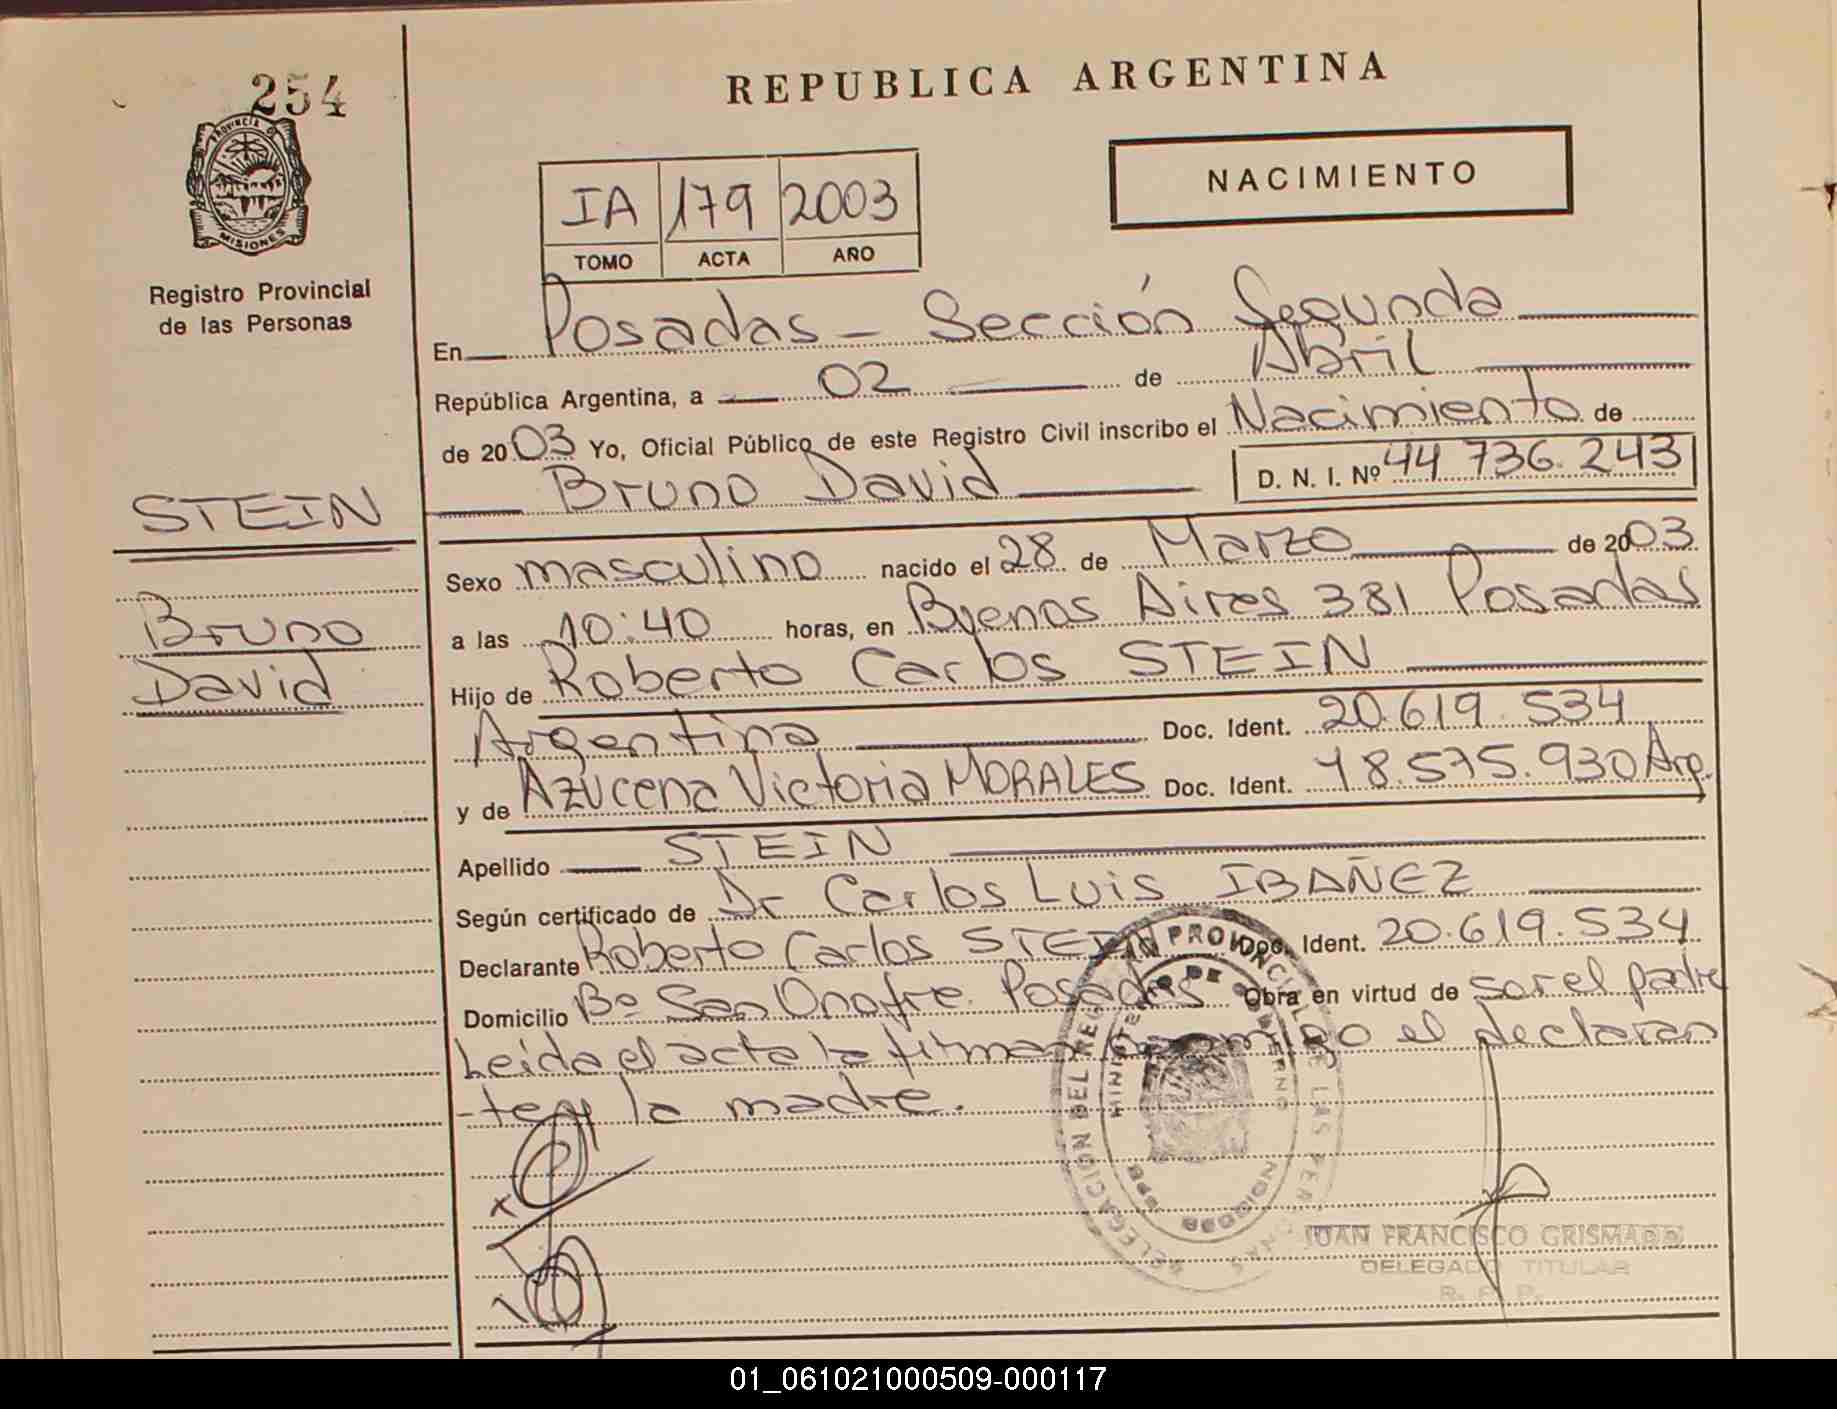 254
PROVINCIA DE
MISIONES
Registro Provincial
de las Personas
STEIN
Bruno
David
REPUBLICA ARGENTINA
NACIMIENTO
IA 179 2003
TOMO ACTA AÑO
En Posadas - Sección Segunda
República Argentina, a 02 de Abril
de 2003 Yo, Oficial Público de este Registro Civil inscribo el Nacimiento de
Bruno David D. N. I. Nº 44 736.243
Sexo masculino nacido el 28 de Marzo de 2003
a las 10:40 horas, en Buenos Aires 381 Posadas
Hijo de Roberto Carlos STEIN
Argentina Doc. Ident. 20.619.534
y de Azucena Victoria MORALES Doc. Ident. 18.575.930 Arg.
Apellido STEIN
Según certificado de Dr Carlos Luis IBAÑEZ
Declarante Roberto Carlos STEIN Doc. Ident. 20.619.534
Domicilio Bº San Onofre. Posadas Obra en virtud de ser el padre
Leida el acta la firman conmigo el declaran
-te y la madre.
DELEGACION DEL REG PROVINCIAL DE LAS PERSONAS
MINISTERIO DE GOBIERNO
JUAN FRANCISCO GRISMADO
DELEGADO TITULAR
R. P. P.
01_061021000509-000117